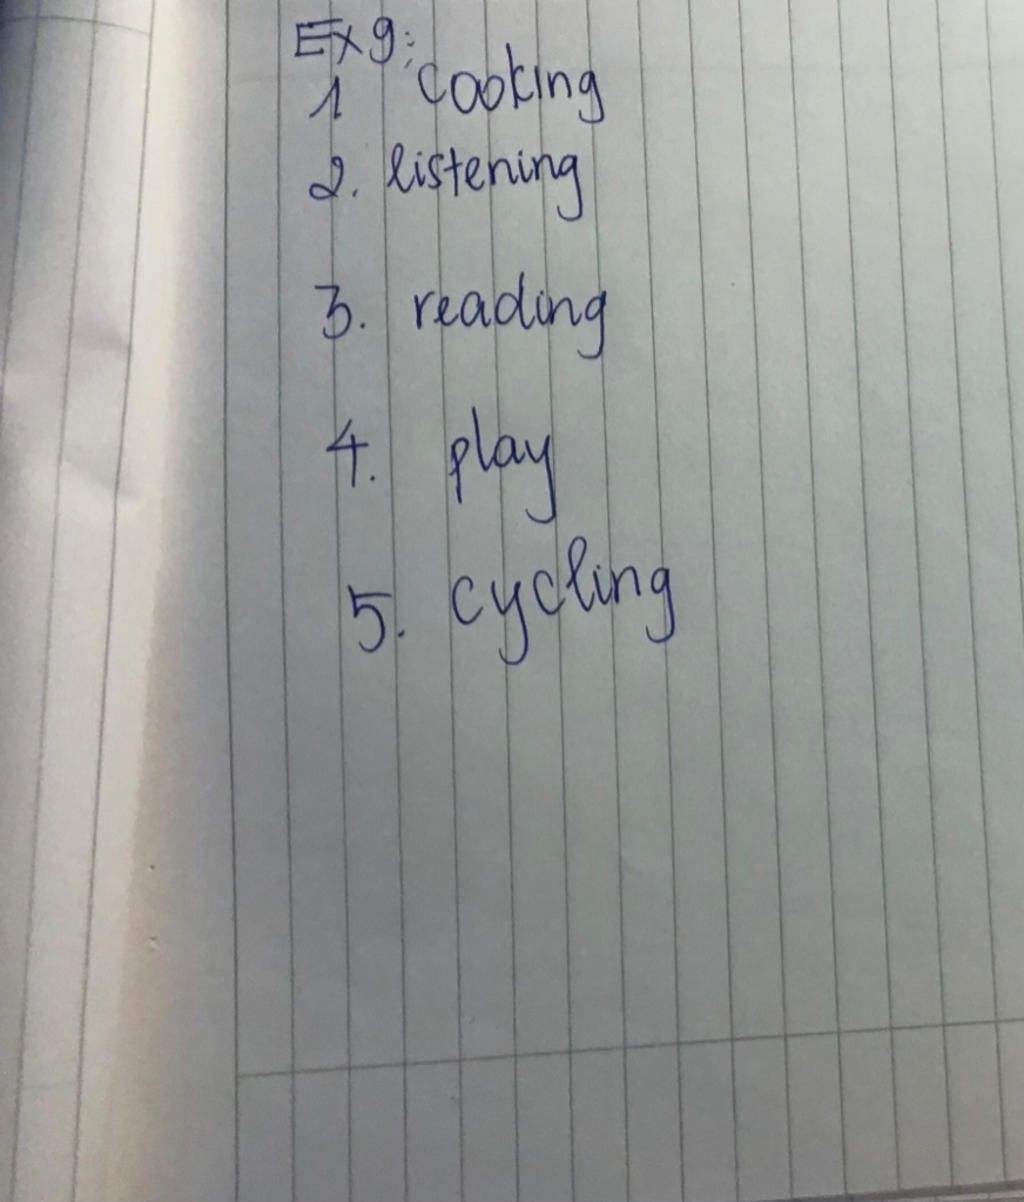 Ex 9:
1 cooking
2. listening
3. reading
4. play
5. cycling